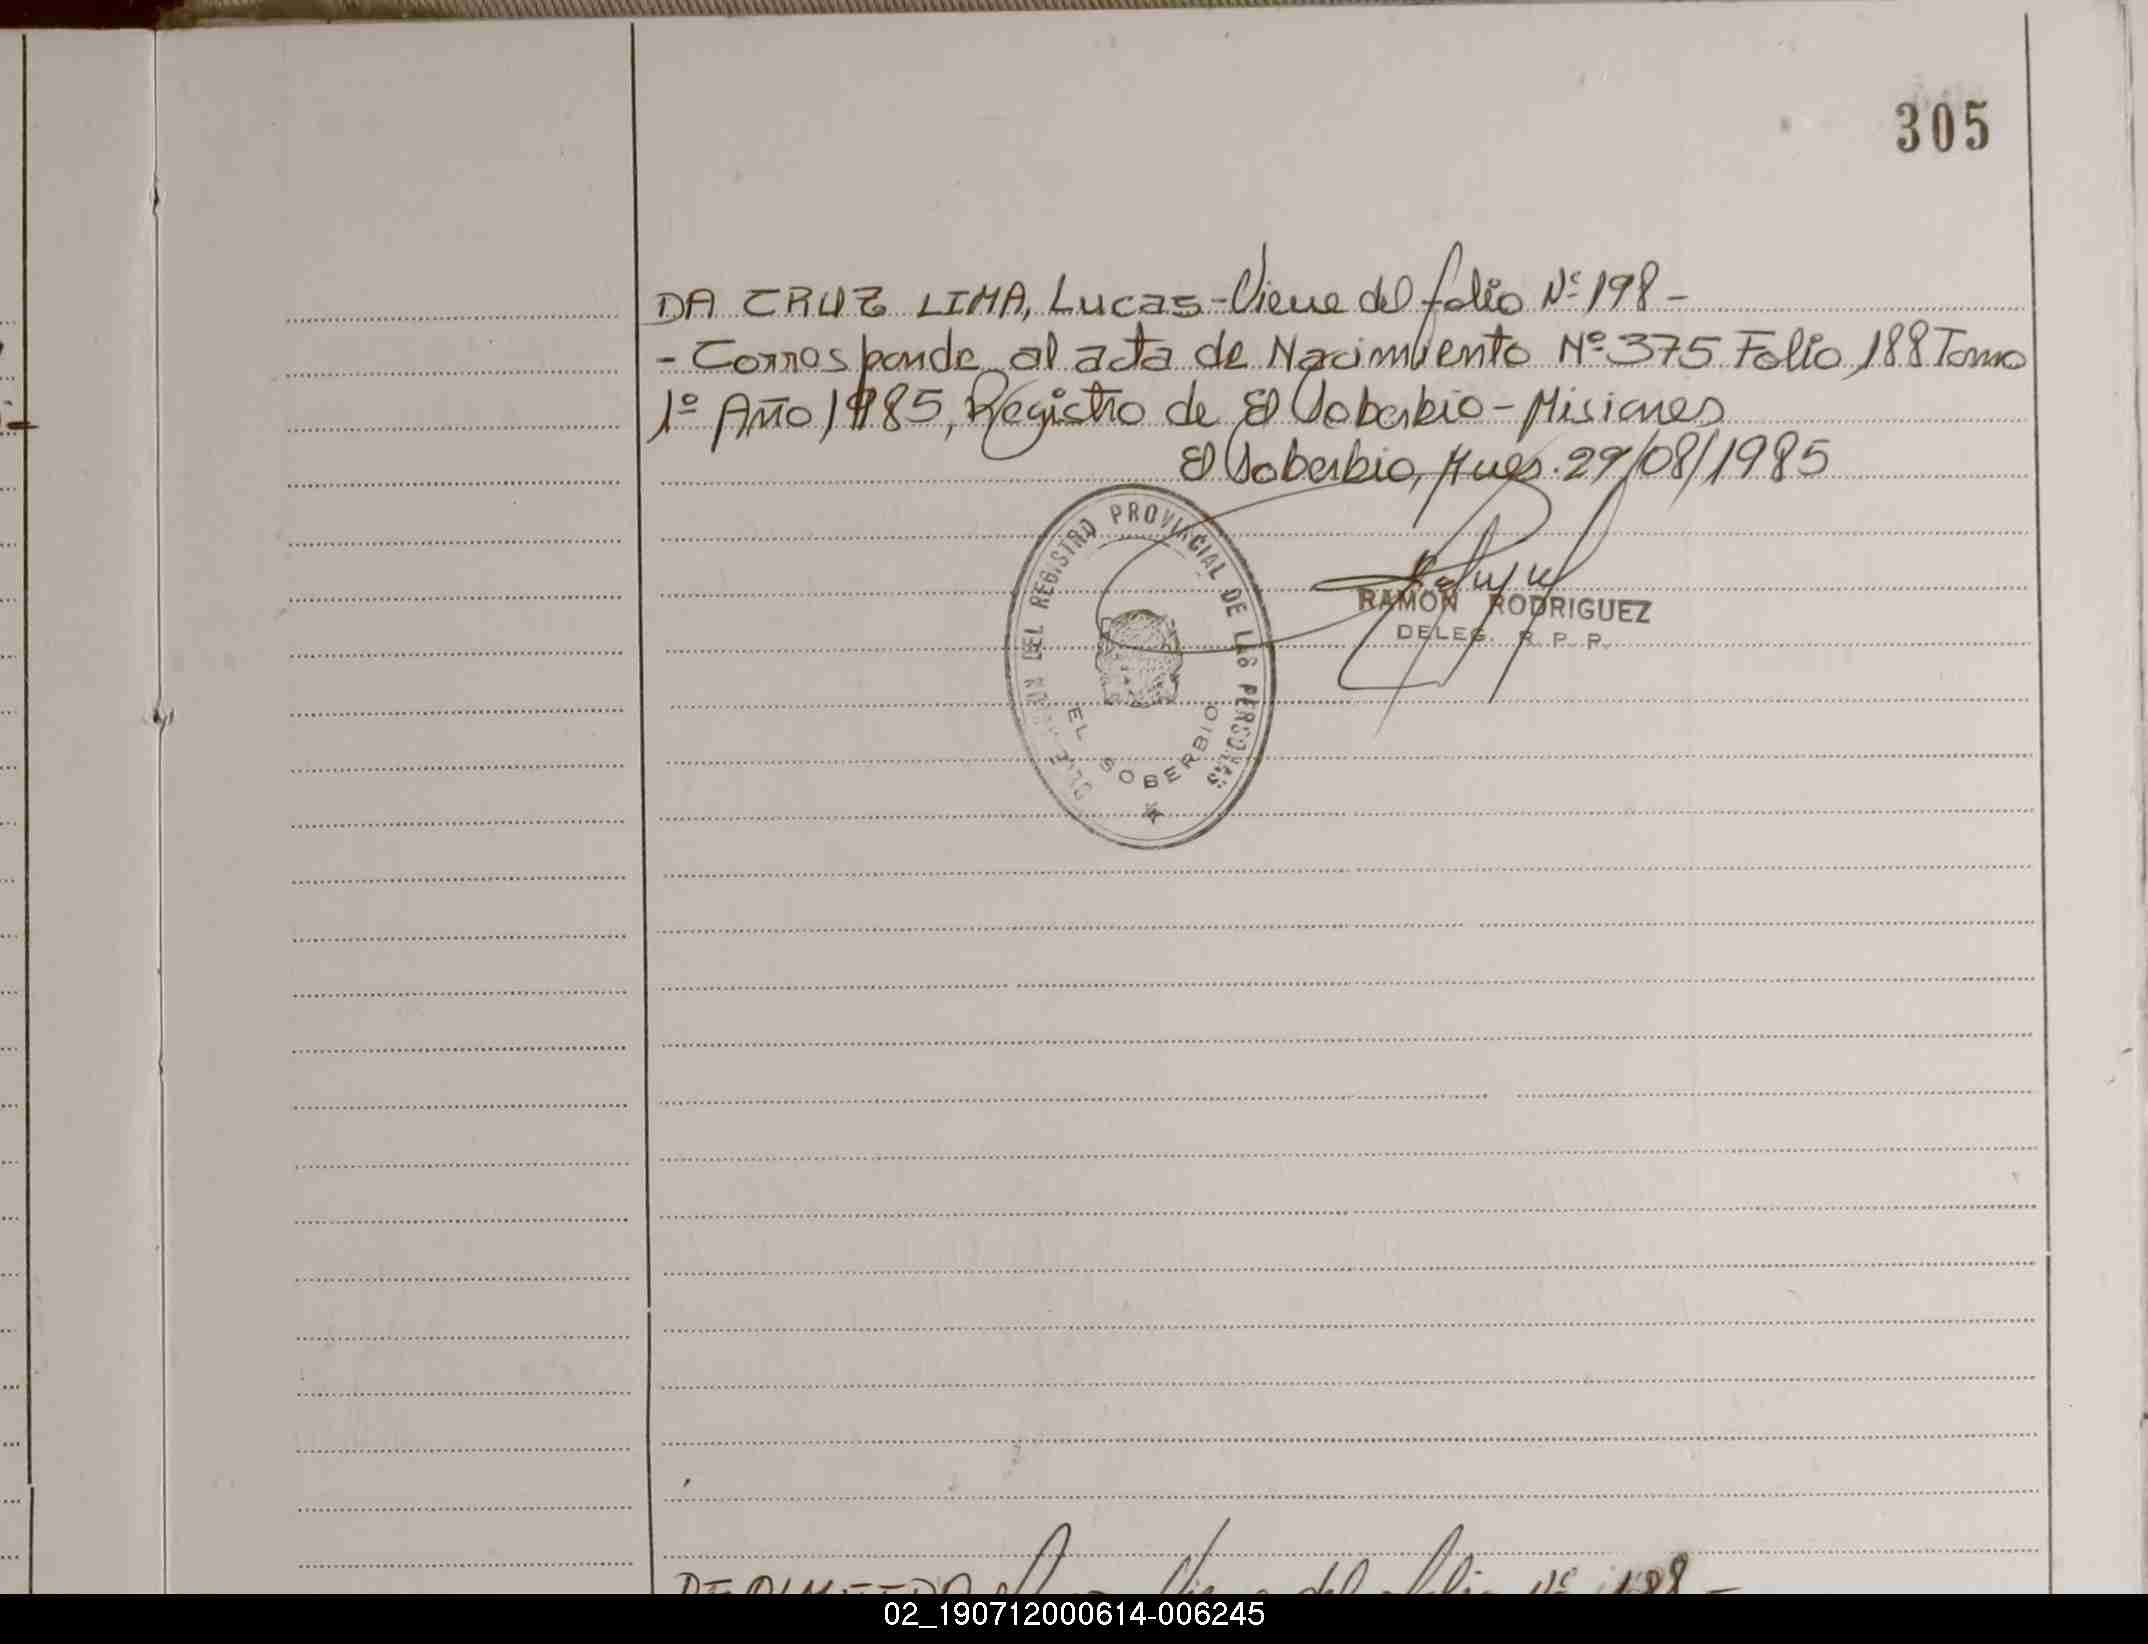 305
DA CRUZ LIMA, Lucas - Viene del folio Nº 198 -
- Corresponde al acta de Nacimiento Nº 375 Folio 188 Tomo
1º Año 1985, Registro de El Soberbio - Misiones
El Soberbio, Mnes. 29/08/1985
DEL REGISTRO PROVINCIAL DE LAS PERSONAS
EL SOBERBIO
RAMON RODRIGUEZ
DELEG. R. P. P.
Viene del folio Nº
02_190712000614-006245